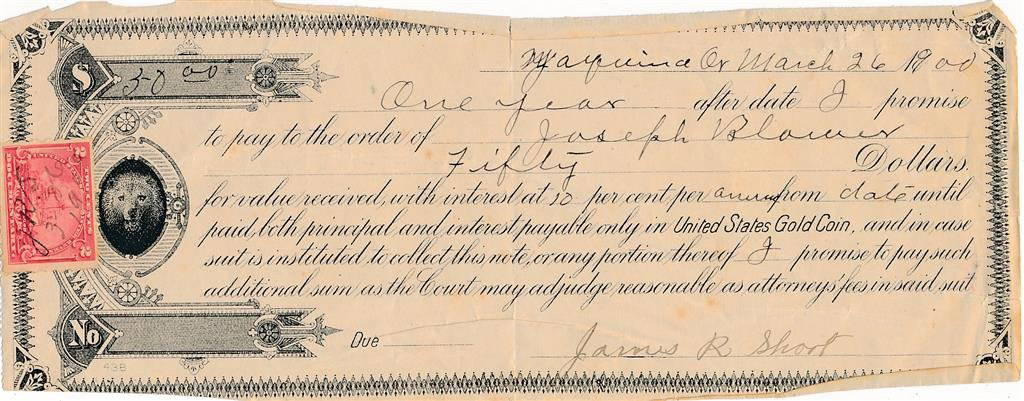 $ 50 00
Yaquina Or March 26 1900
One year after date I promise
to pay to the order of Joseph Blower
Fifty Dollars.
for value received, with interest at 10 per cent per annum from date until
paid, both principal and interest payable only in United States Gold Coin, and in case
suit is instituted to collect this note, or any portion thereof I promise to pay such
additional sum, as the Court may adjudge reasonable as attorney's fees in said suit
No
Due
James R Short
438